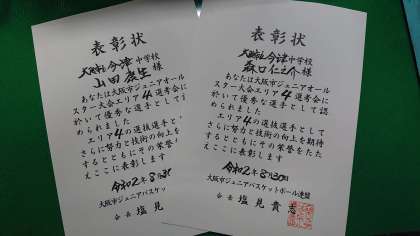 表彰状
大阪市立今津中学校
山田康生様
あなたは大阪市ジュニアオール
スター大会エリア4選考会に
於いて優秀な選手として認
められました
エリア4の選抜選手と
さらに努力と技術の向上を
するとともにその栄誉
えここに表彰します
令和2年8月30
大阪市ジュニアバスケッ
会長 塩見
表彰状
大阪市立今津中学校
森口仁之介様
あなたは大阪市ジュニアオール
スター大会エリア4選考会に
於いて優秀な選手として認
められました
エリア4の選抜選手として
さらに努力と技術の向上を期待
するとともにその栄誉をたた
えここに表彰します
令和2年8月30日
大阪市ジュニアバスケットボール連盟
会長 塩見貴志